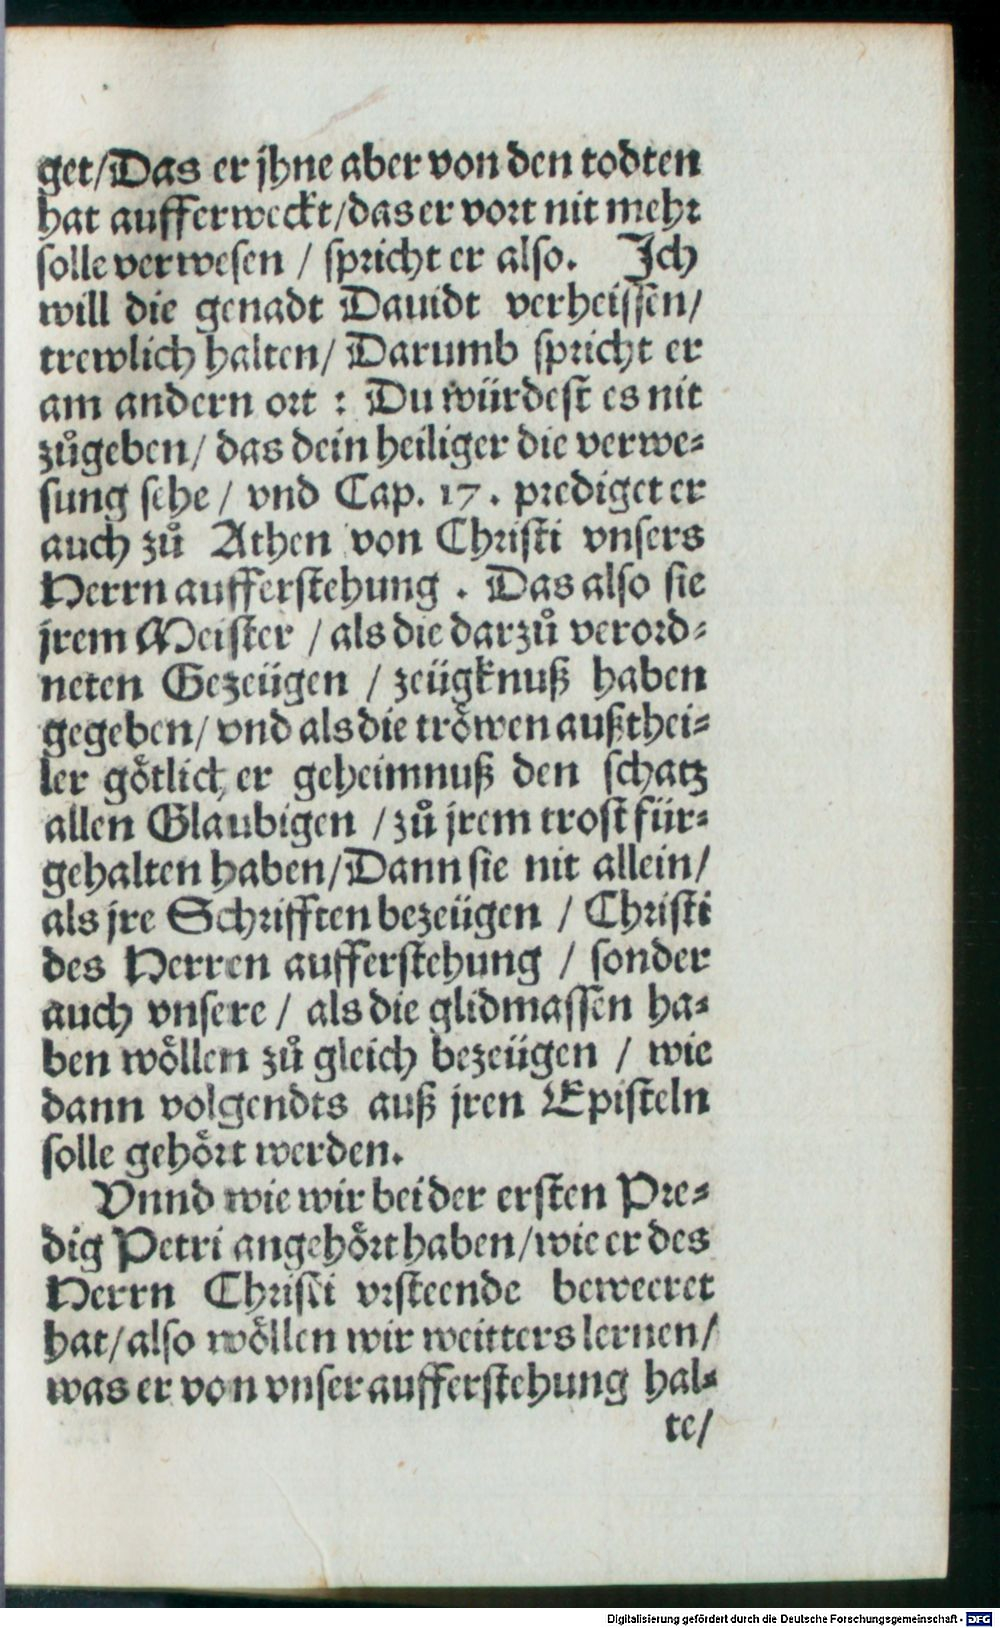 get/Das er jhne aber von den todten
hat aufferweckt/das er vort nit mehr
solle verwesen / spricht er also. Ich
will die genadt Dauidt verheissen/
trewlich halten/ Darumb spricht er
am andern ort : Du würdest es nit
zůgeben/ das dein heiliger die verwe-
sung sehe / vnd Cap. 17. prediget er
auch zů Athen von Christi vnsers
Herrn aufferstehung . Das also sie
jrem Meister / als die darzů verord-
neten Gezeügen / zeügknuß haben
gegeben/ vnd als die tröwen außthei-
ler götlicher geheimnuß den schatz
allen Glaubigen / zů jrem trost für-
gehalten haben/Dann sie nit allein/
als jre Schrifften bezeügen / Christi
des Herren aufferstehung / sonder
auch vnsere / als die glidmassen ha-
ben wöllen zů gleich bezeügen / wie
dann volgendts auß jren Episteln
solle gehört werden.
Vnnd wie wir bei der ersten Pre-
dig Petri angehört haben/wie er des
Herrn Christi vrsteende beweeret
hat/also wöllen wir weitters lernen/
was er von vnser aufferstehung hal-
te/
Digitalisierung gefördert durch die Deutsche Forschungsgemeinschaft - DFG